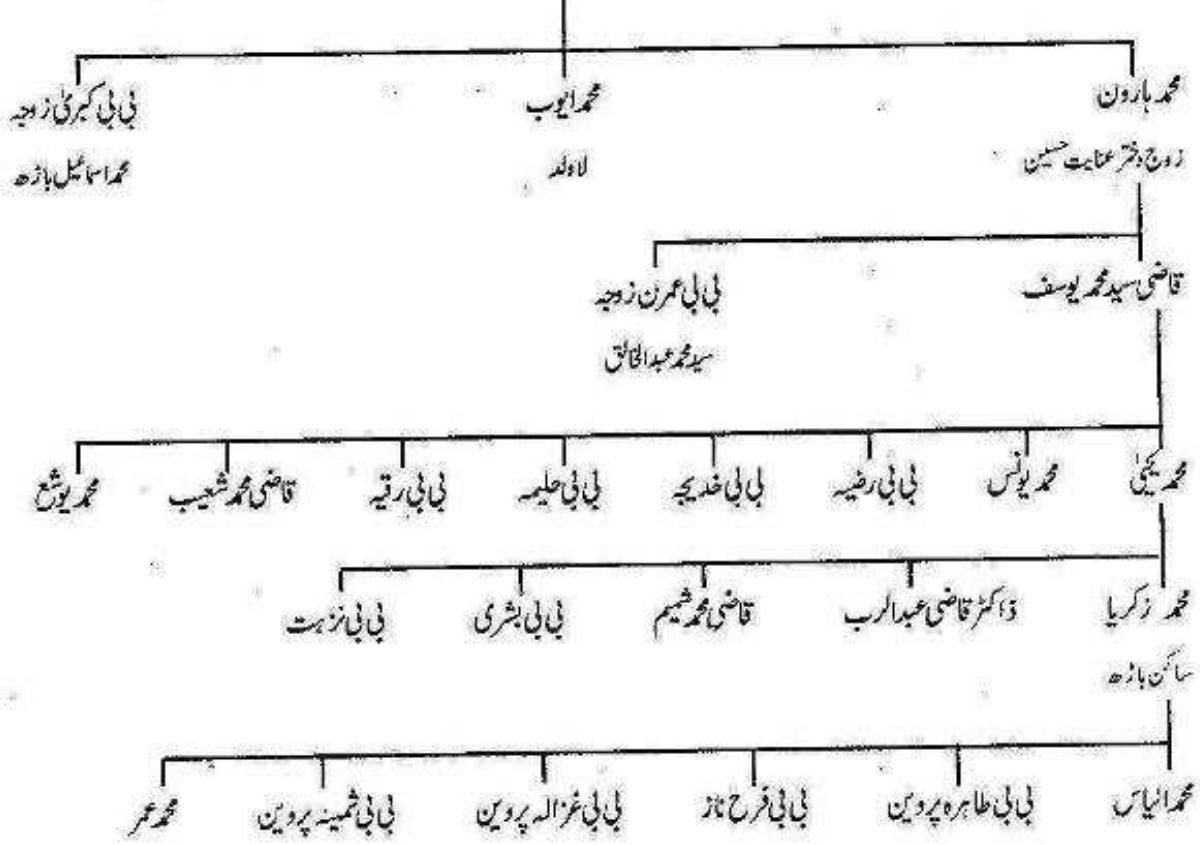 محمد ہارون
محمد ایوب
بی بی کبریٰ زوجہ
زوج دختر عنایت حسین
لاولد
محمد اسماعیل باڑھ
قاضی سید محمد یوسف
بی بی عمرن زوجہ
سید محمد عبدالخالق
محمد یحییٰ
محمد یونس
بی بی رضیہ
بی بی خدیجہ
بی بی حلیمہ
بی بی رقیہ
قاضی محمد شعیب
محمد یوشع
محمد زکریا
ڈاکٹر قاضی عبدالرب
قاضی محمد شمیم
بی بی بشری
بی بی نزہت
ساکن باڑھ
محمد الیاس
بی بی طاہرہ پروین
بی بی فرح ناز
بی بی غزالہ پروین
بی بی ثمینہ پروین
محمد عمر